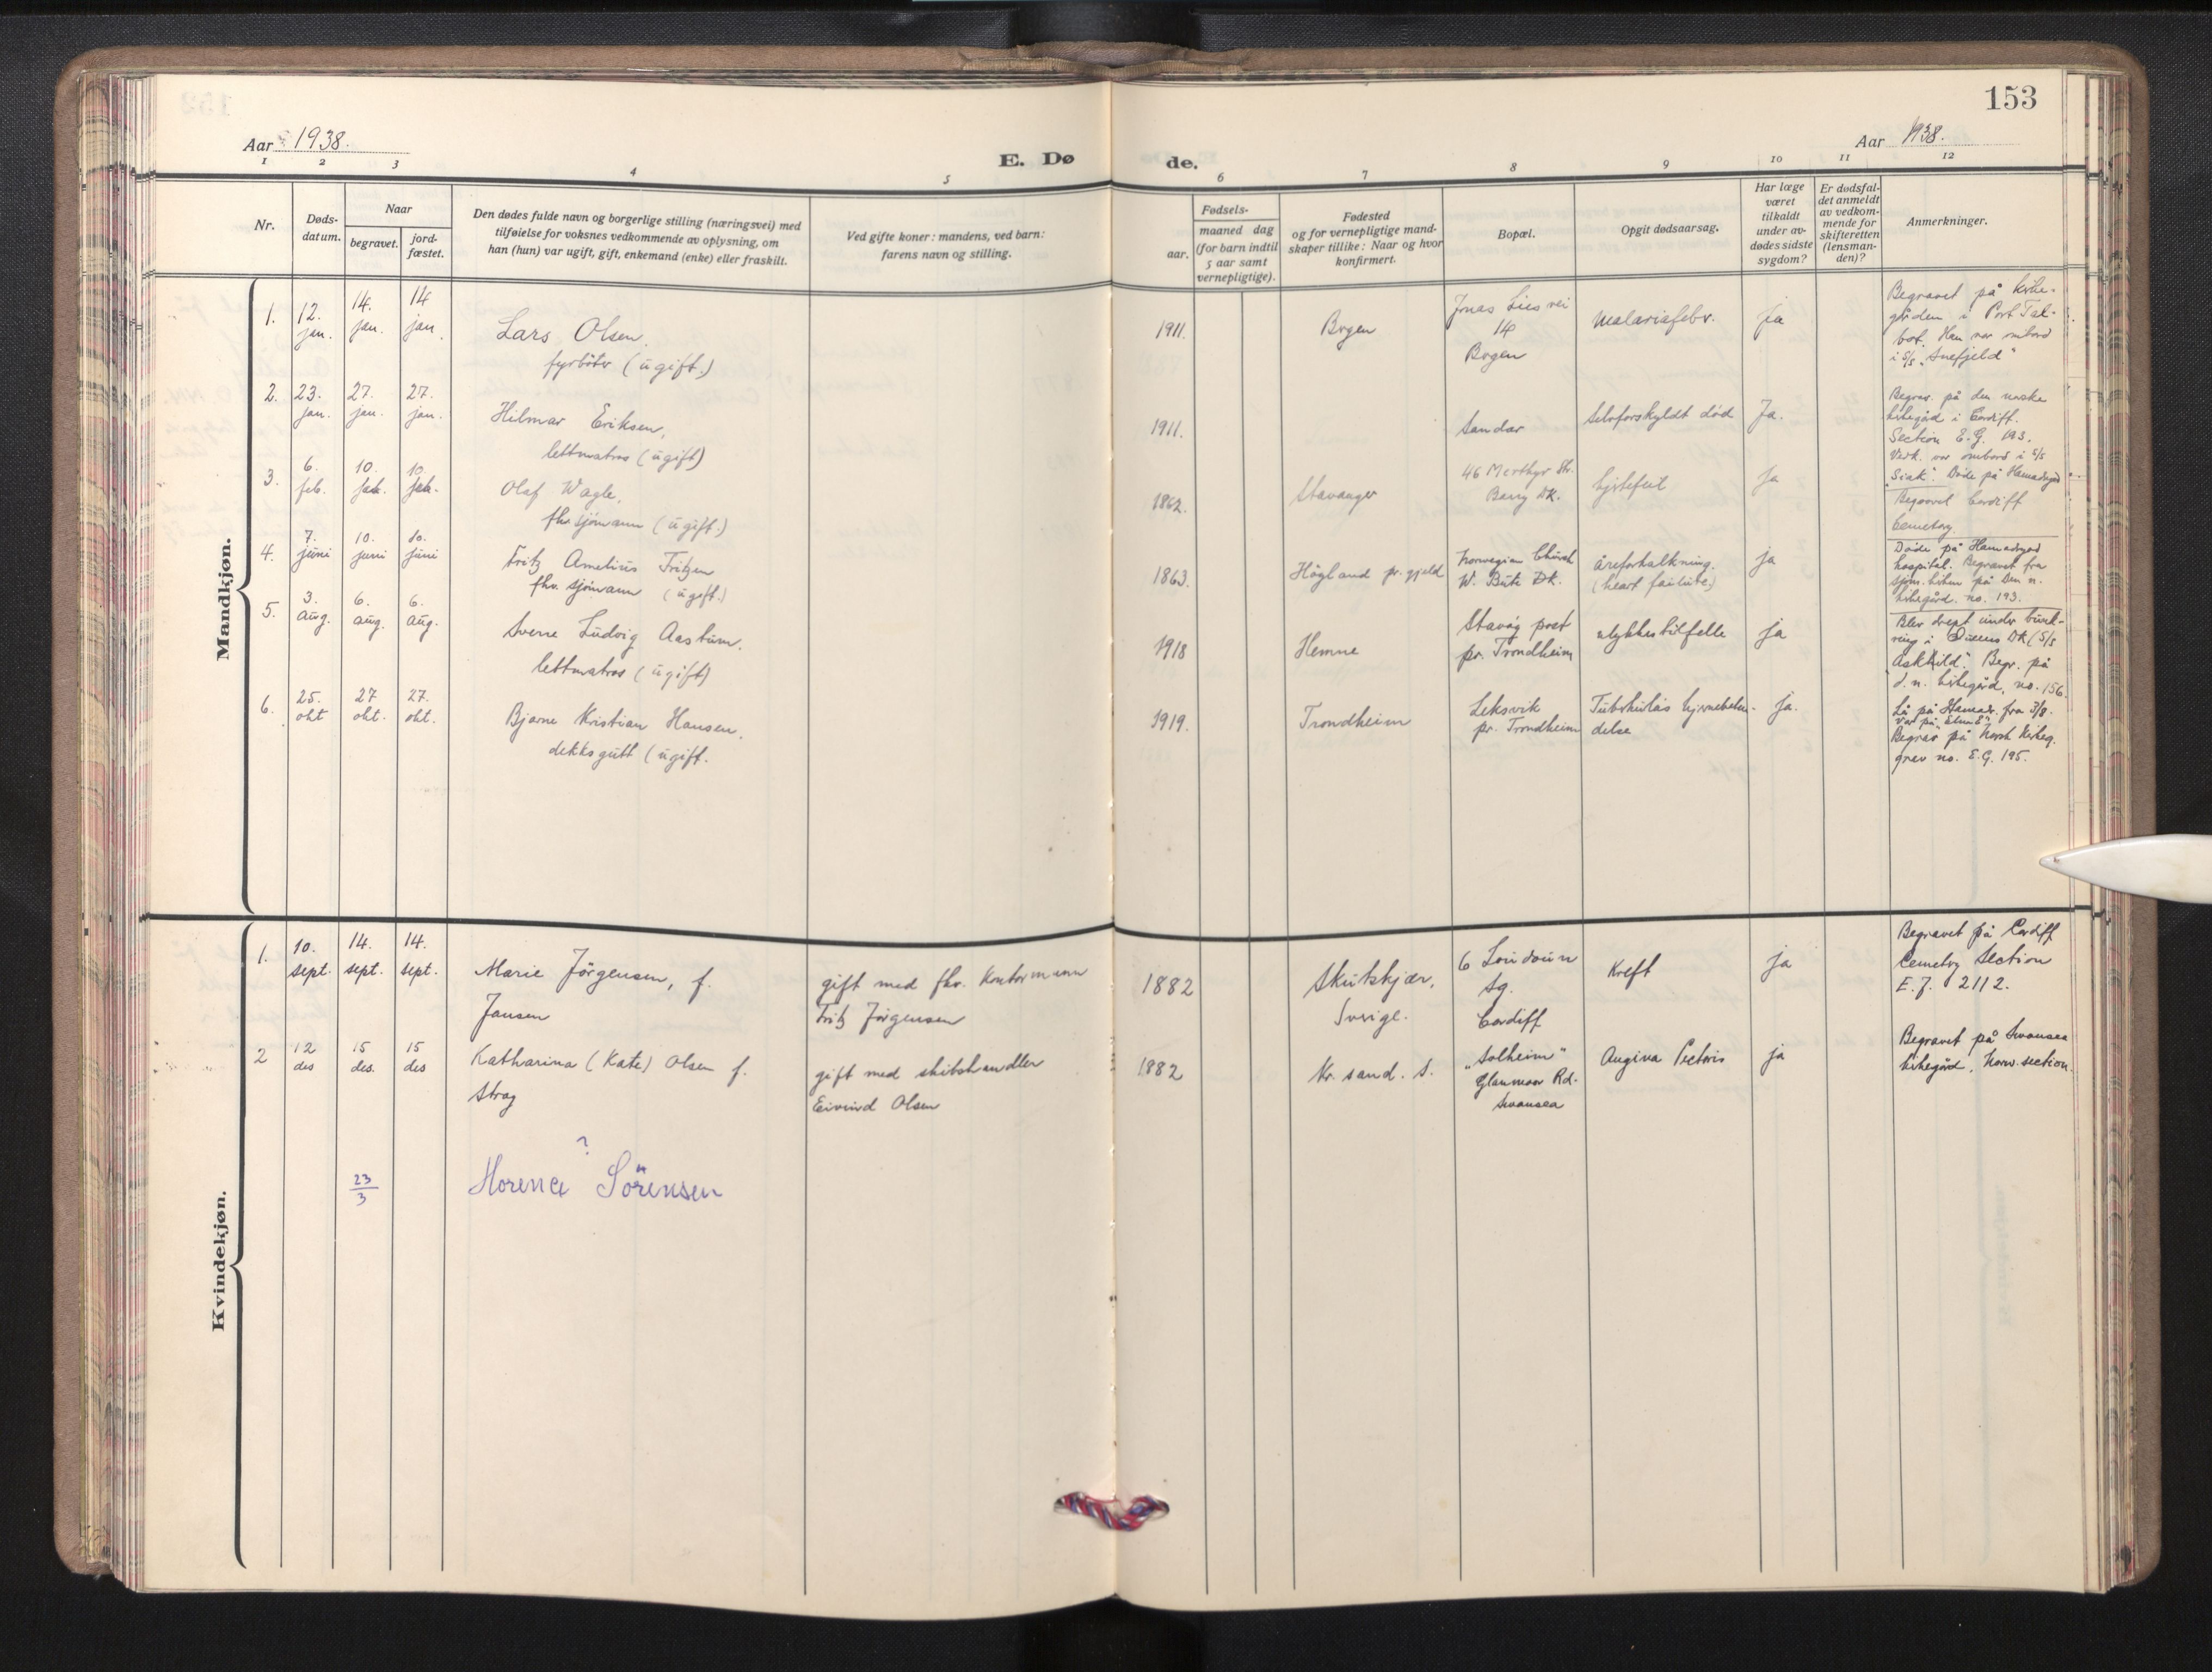 153
Aar 1938.
Aar 1938.
E. Dø
de.
1 2 3 4 5 6 7 8 9 10 11 12
Nr.
Døds-
datum.
Naar
begravet.
jord-
fæstet.
Den dødes fulde navn og borgerlige stilling (næringsvei) med
tilføielse for voksnes vedkommende av oplysning, om
han (hun) var ugift, gift, enkemand (enke) eller fraskilt.
Ved gifte koner: mandens, ved barn:
farens navn og stilling.
Fødsels-
aar.
maaned dag
(for barn indtil
5 aar samt
vernepligtige).
Fødested
og for vernepligtige mand-
skaper tillike: Naar og hvor
konfirmert.
Bopæl.
Opgit dødsaarsag.
Har læge
været
tilkaldt
under av-
dødes sidste
sygdom?
Er dødsfal-
det anmeldt
av vedkom-
mende for
skifteretten
(lensman-
den)?
Anmerkninger.
Mandkjøn.
1.
12.
jan.
14.
jan.
14
jan.
Lars Olsen.
fyrböter (ugift.)
1911.
Bogen
Jonas Lies vei
14
Bogen
Malariafeber.
ja
Begravet på kirke-
gården i Port Tal-
bot. Han var ombord
i S/S "Snefjeld"
2.
23.
jan.
27.
jan.
27.
jan.
Hilmar Eriksen,
lettmatros (ugift)
1911.
Sandar
Selvforskyldt död
Ja.
Begrav. på den norske
kirkegård i Cardiff.
Section E.G. 193.
Vedk. var ombord i S/S
"Siak". Döde på Hamadryad
3.
6.
feb.
10.
feb.
10.
feb.
Olaf Wagle,
fhv. sjömann (ugift.)
1862.
Stavanger
46 Merthyr Str.
Barry Dk.
hjertefeil
ja
Begravet Cardiff
Cemetery
4.
7.
juni
10.
juni
10.
juni
Fritz Amelius Fritzen
fhv. sjömann (ugift.)
1863.
Högland pr.gjeld
Norwegian Church
W. Bute Dk.
åreforkalkning.
(heart failure)
ja
Döde på Hamadryad
hospital. Begravet fra
sjøm. kirken på Den n.
kirkegård. no. 193.
5.
3.
aug.
6.
aug.
6.
aug.
Sverre Ludvig Aastum.
lettmatros (ugift)
1918
Hemne
Stavåg post
pr. Trondheim
ulykkestilfelle
ja
Blev drept under bunk-
ring i Queens Dk (S/S
"Askhild". Begr. på
d. n. kirkegård, no. 156.
6.
25.
okt
27
okt.
27.
okt.
Bjarne Kristian Hansen.
dekksgutt (ugift.
1919.
Trondheim
Leksvik
pr. Trondheim
Tuberkuløs hjernebeten-
delse
ja.
Lå på Hamadr. fra 3/8.
Begrav på Norsk Kirkeg.
grav no. E.G. 195.
Kvindekjøn.
1.
10.
sept.
14.
sept.
14.
sept.
Marie Jörgensen, f.
Jansen
gift med fhv. Kontormann
Fritz Jörgensen
1882
Skutskjær,
Sverige.
6 Loudoun
Sq.
Cardiff
Kreft
ja
Begravet på Cardiff
Cemetry Section
E.J. 2112.
2
12
des
15
des.
15
des
Katharina (Kate) Olsen f.
Stray
gift med skibshandler
Eivind Olsen
1882
Kr. sand. S.
"Solheim"
Glanmoor Rd.
Swansea
Angina Pectoris
ja
Begravet på Swansea
kirkegård, Norw. section.
23
3
?
Florence Sörensen